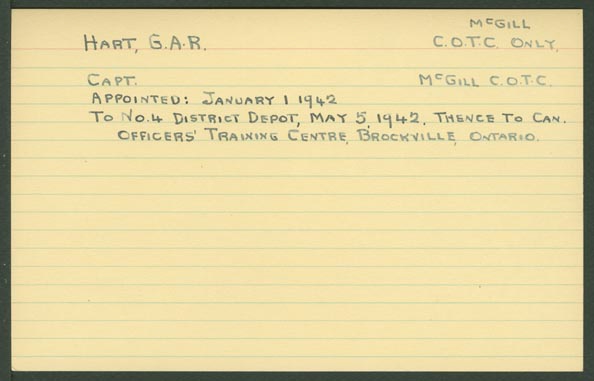 McGILL
HART, G.A.R. C.O.T.C. ONLY.
CAPT. McGILL C.O.T.C.
APPOINTED: JANUARY 1 1942
TO NO.4 DISTRICT DEPOT, MAY 5, 1942. THENCE TO CAN.
OFFICERS' TRAINING CENTRE, BROCKVILLE, ONTARIO.